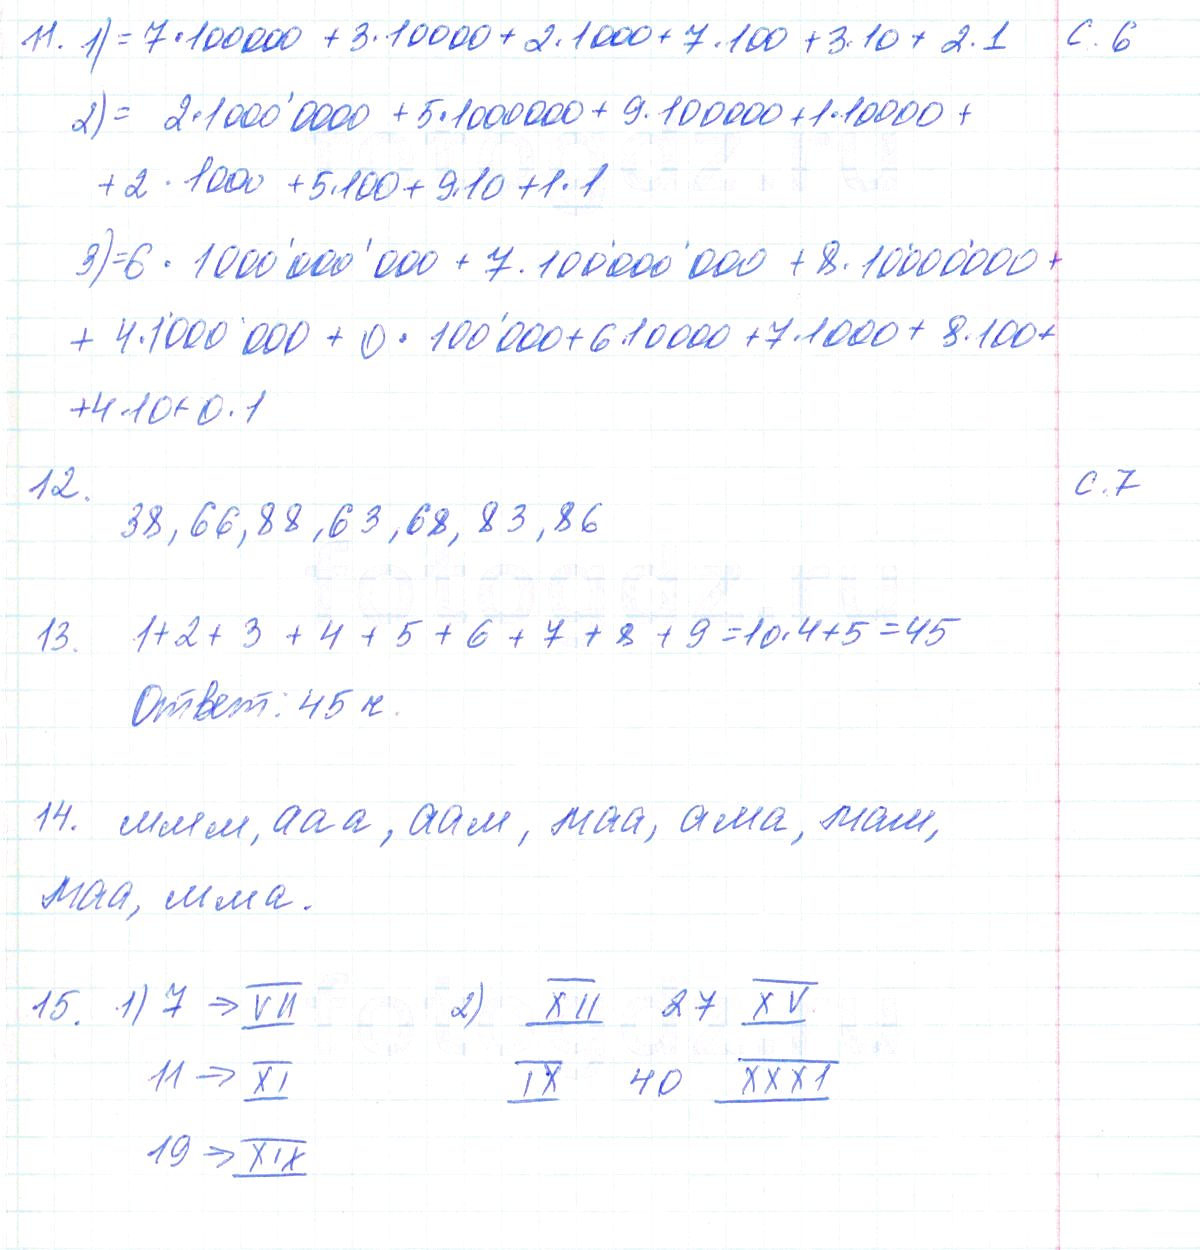 11. 1) = 7·100000 + 3·10000 + 2·1000 + 7·100 + 3·10 + 2·1 с. 6
2) = 2·1000'0000 + 5·1000000 + 9·100000 + 1·10000 +
+ 2 · 1000 + 5·100 + 9·10 + 1·1
3) = 6 · 1000'000'000 + 7·100'000'000 + 8·10'000'000 +
+ 4·1'000'000 + 0 · 100'000 + 6·10000 + 7·1000 + 8·100 +
+ 4·10 + 0·1
12. с. 7
38, 66, 88, 63, 68, 83, 86
13. 1 + 2 + 3 + 4 + 5 + 6 + 7 + 8 + 9 = 10·4 + 5 = 45
Ответ: 45 ч.
14. ммм, ааа, аам, маа, ама, мам,
маа, мма.
15. 1) 7 → VII 2) XII 27 XV
11 → XI IX 40 XXXI
19 → XIX